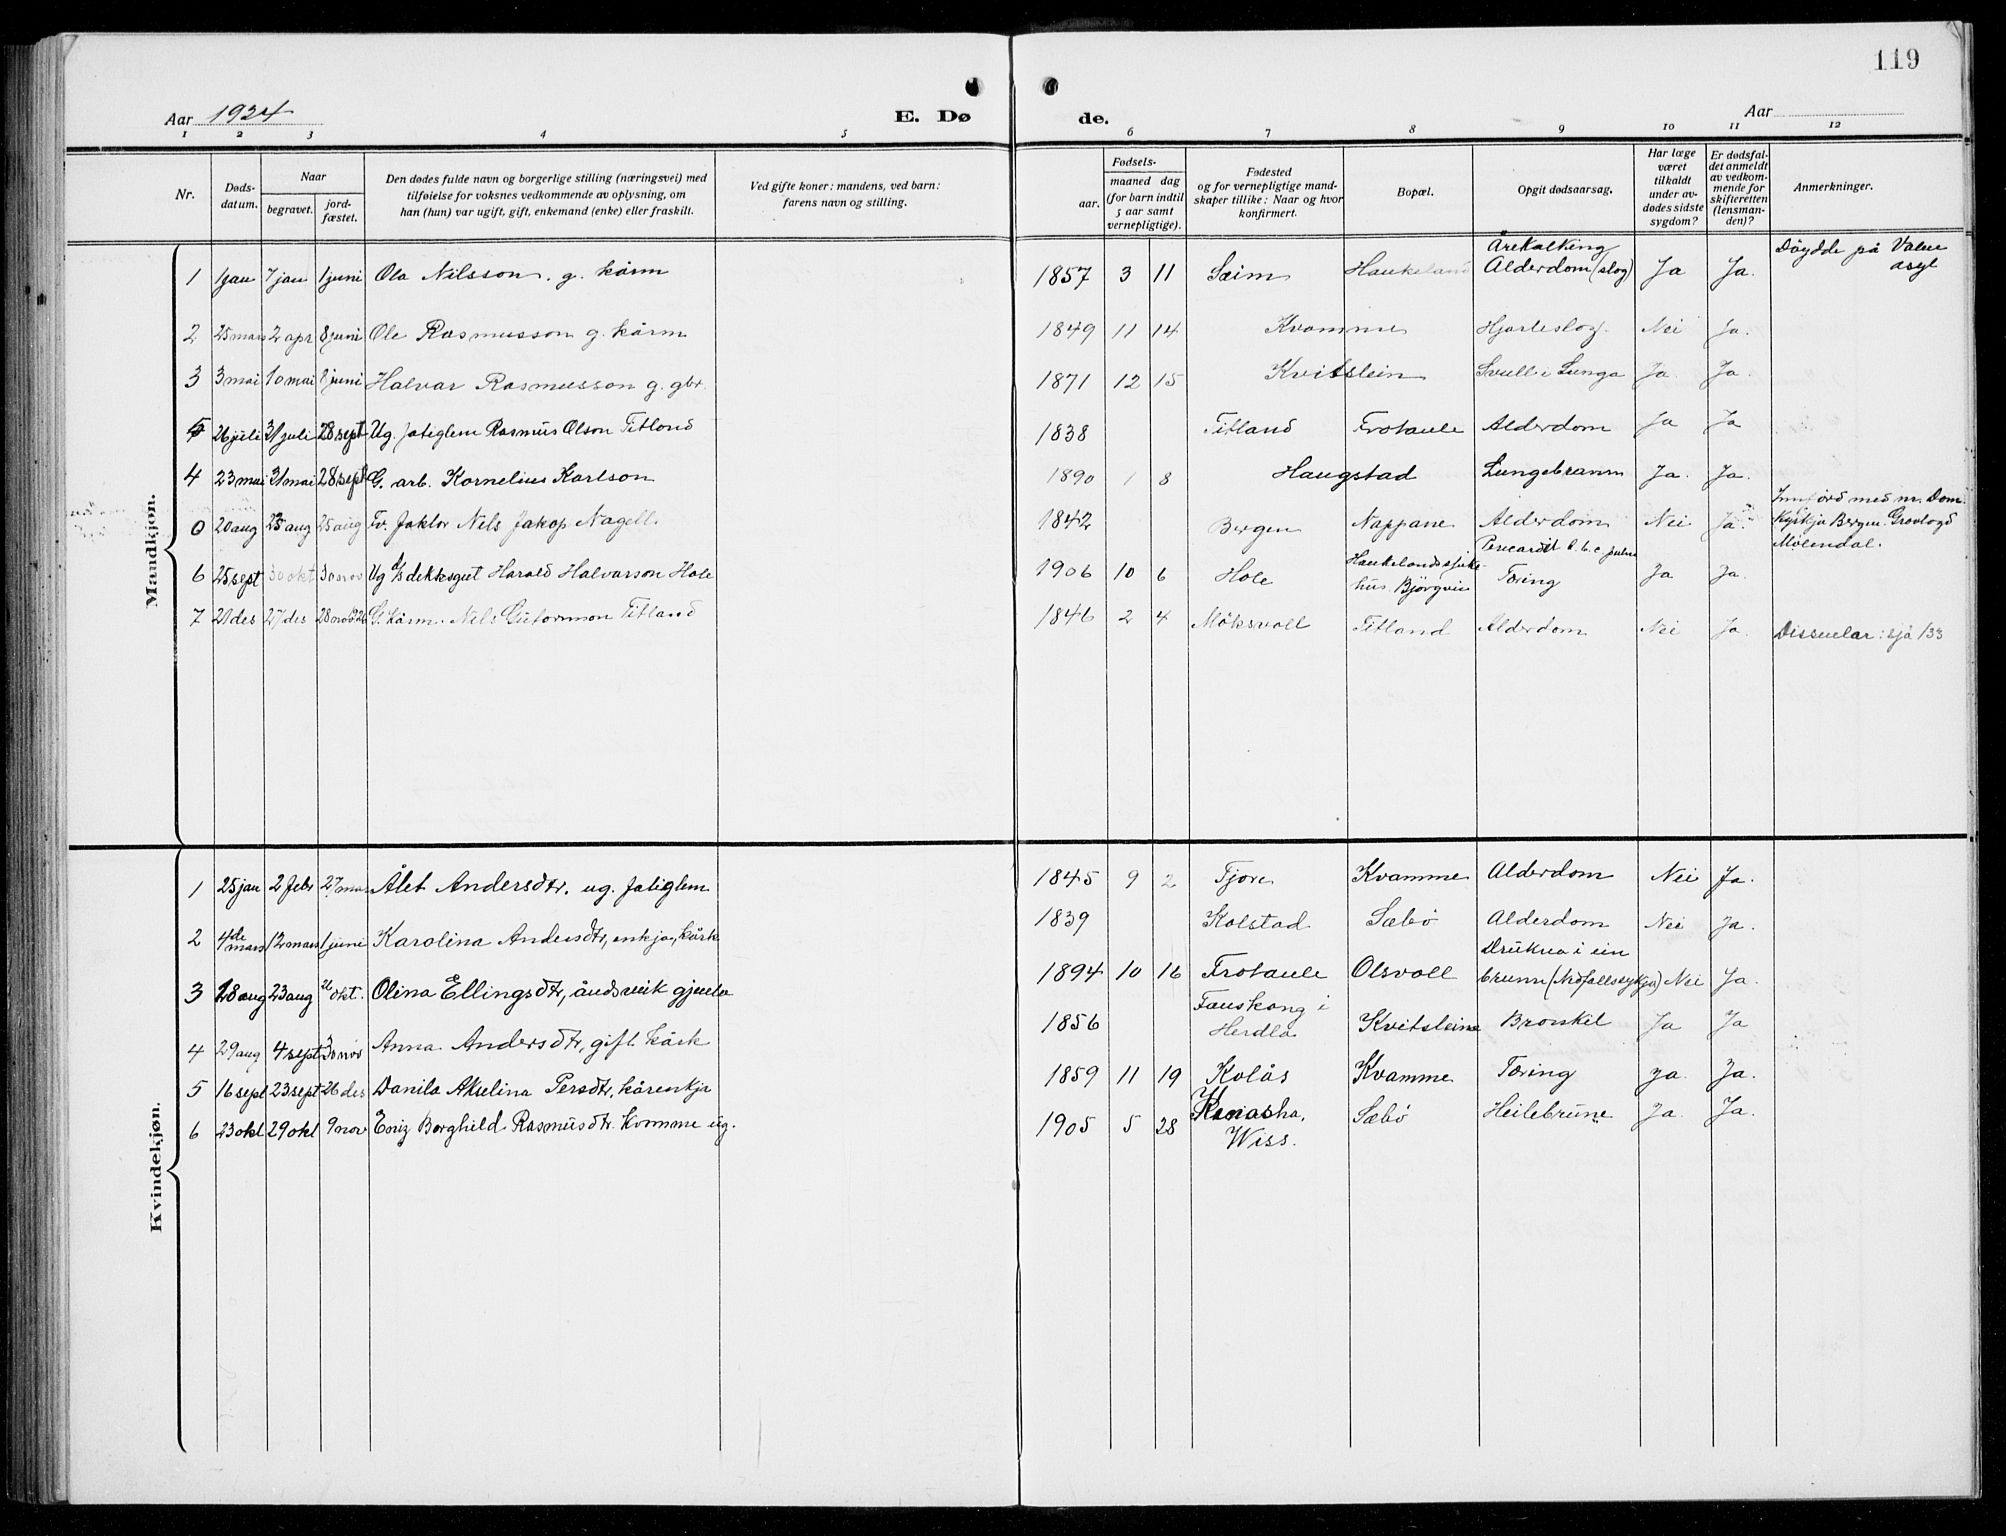 119
Aar 1924
E. Dø
de.
Aar
1 2 3 4 5 6 7 8 9 10 11 12
Nr.
Døds-
datum.
Naar
begravet.
jord-
fæstet.
Den dødes fulde navn og borgerlige stilling (næringsvei) med
tilføielse for voksnes vedkommende av oplysning, om
han (hun) var ugift, gift, enkemand (enke) eller fraskilt.
Ved gifte koner: mandens, ved barn:
farens navn og stilling.
Fødsels-
aar.
maaned dag
(for barn indtil
5 aar samt
vernepligtige).
Fødested
og for vernepligtige mand-
skaper tillike: Naar og hvor
konfirmert.
Bopæl.
Opgit dødsaarsag.
Har læge
været
tilkaldt
under av-
dødes sidste
sygdom?
Er dødsfal-
det anmeldt
av vedkom-
mende for
skifteretten
(lensman-
den)?
Anmerkninger.
Mandkjøn.
1 1 jan 7 jan 1 juni Ola Nilsson. g. kårm 1857 3 11 Sæim Haukeland Årekalking
Alderdom (slog) Ja Ja. Døydde på
asyl
2 25 mars 2 apr 8 juni Ole Rasmusson g. kårm 1849 11 14 Kvamme Hjarteslog. Nei Ja.
3 3 mai 10 mai 8 juni Halvar Rasmusson g. gbr. 1871 12 15 Kvitstein Svull i Lunga Ja. Ja.
5 26 juli 31 juli 28 sept Ug. fatiglem Rasmus Olson Titland 1838 Titland Frotaule Alderdom Ja Ja
4 23 mai 31 mai 28 sept G. arb. Kornelius Karlson 1890 1 8 Haugstad Lungebranm Ja. Ja.
0 20 aug 25 aug 25 aug Fv. faktor Nels Jakop Nagell. 1842 Bergen Nappane Alderdom Nei Ja. Innførd med nr. Dom-
kyrkja Bergen. Gravlagd
Mölendal.
6 25 sept 30 okt 30 nov Ug d/s dekksgut Harald Halvarson Hole 1906 10 6 Hole Haukelandssjuke-
hus. Bjørgvin Tæring Ja Ja.
7 21 des 27 des 28 nov 1926 G. kårm. Nils Guttormson Titland 1846 2 4 Möksvoll Titland Alderdom Nei Ja. Dissentar: sjå 133
Kvindekjøn.
1 25 jan 2 febr 27 mai Ålet Andersdtr. ug. fatiglem 1845 9 2 Tjore Kvamme Alderdom Nei Ja.
2 4de mars 12 mars 1 juni Karolina Andersdtr, enkja, kårk 1839 Kolstad Sæbö Alderdom Nei Ja.
3 18 aug 23 aug 26 okt. Olina Ellingsdtr, åndsveik gjenta 1894 10 16 Frotaule Olsvoll Drukna i ein
brunn (Nedfallssykja) Nei Ja.
4 29 aug 4 sept 30 nov Anna Andersdtr, gift kårk 1856 Fauskang i
Herdla Kvitsteine Broıskil Ja Ja
5 16 sept 23 sept 26 des Danila Akselina Persdtr, kårenkja 1859 11 19 Kolås Kvamme Tæring Ja. Ja.
6 23 okt 29 okt 9 nov Borghild Rasmusdtr. Kvamme ug. 1905 5 28 Kenasha,
Wiss. Sæbö Heilebrune Ja. Ja.